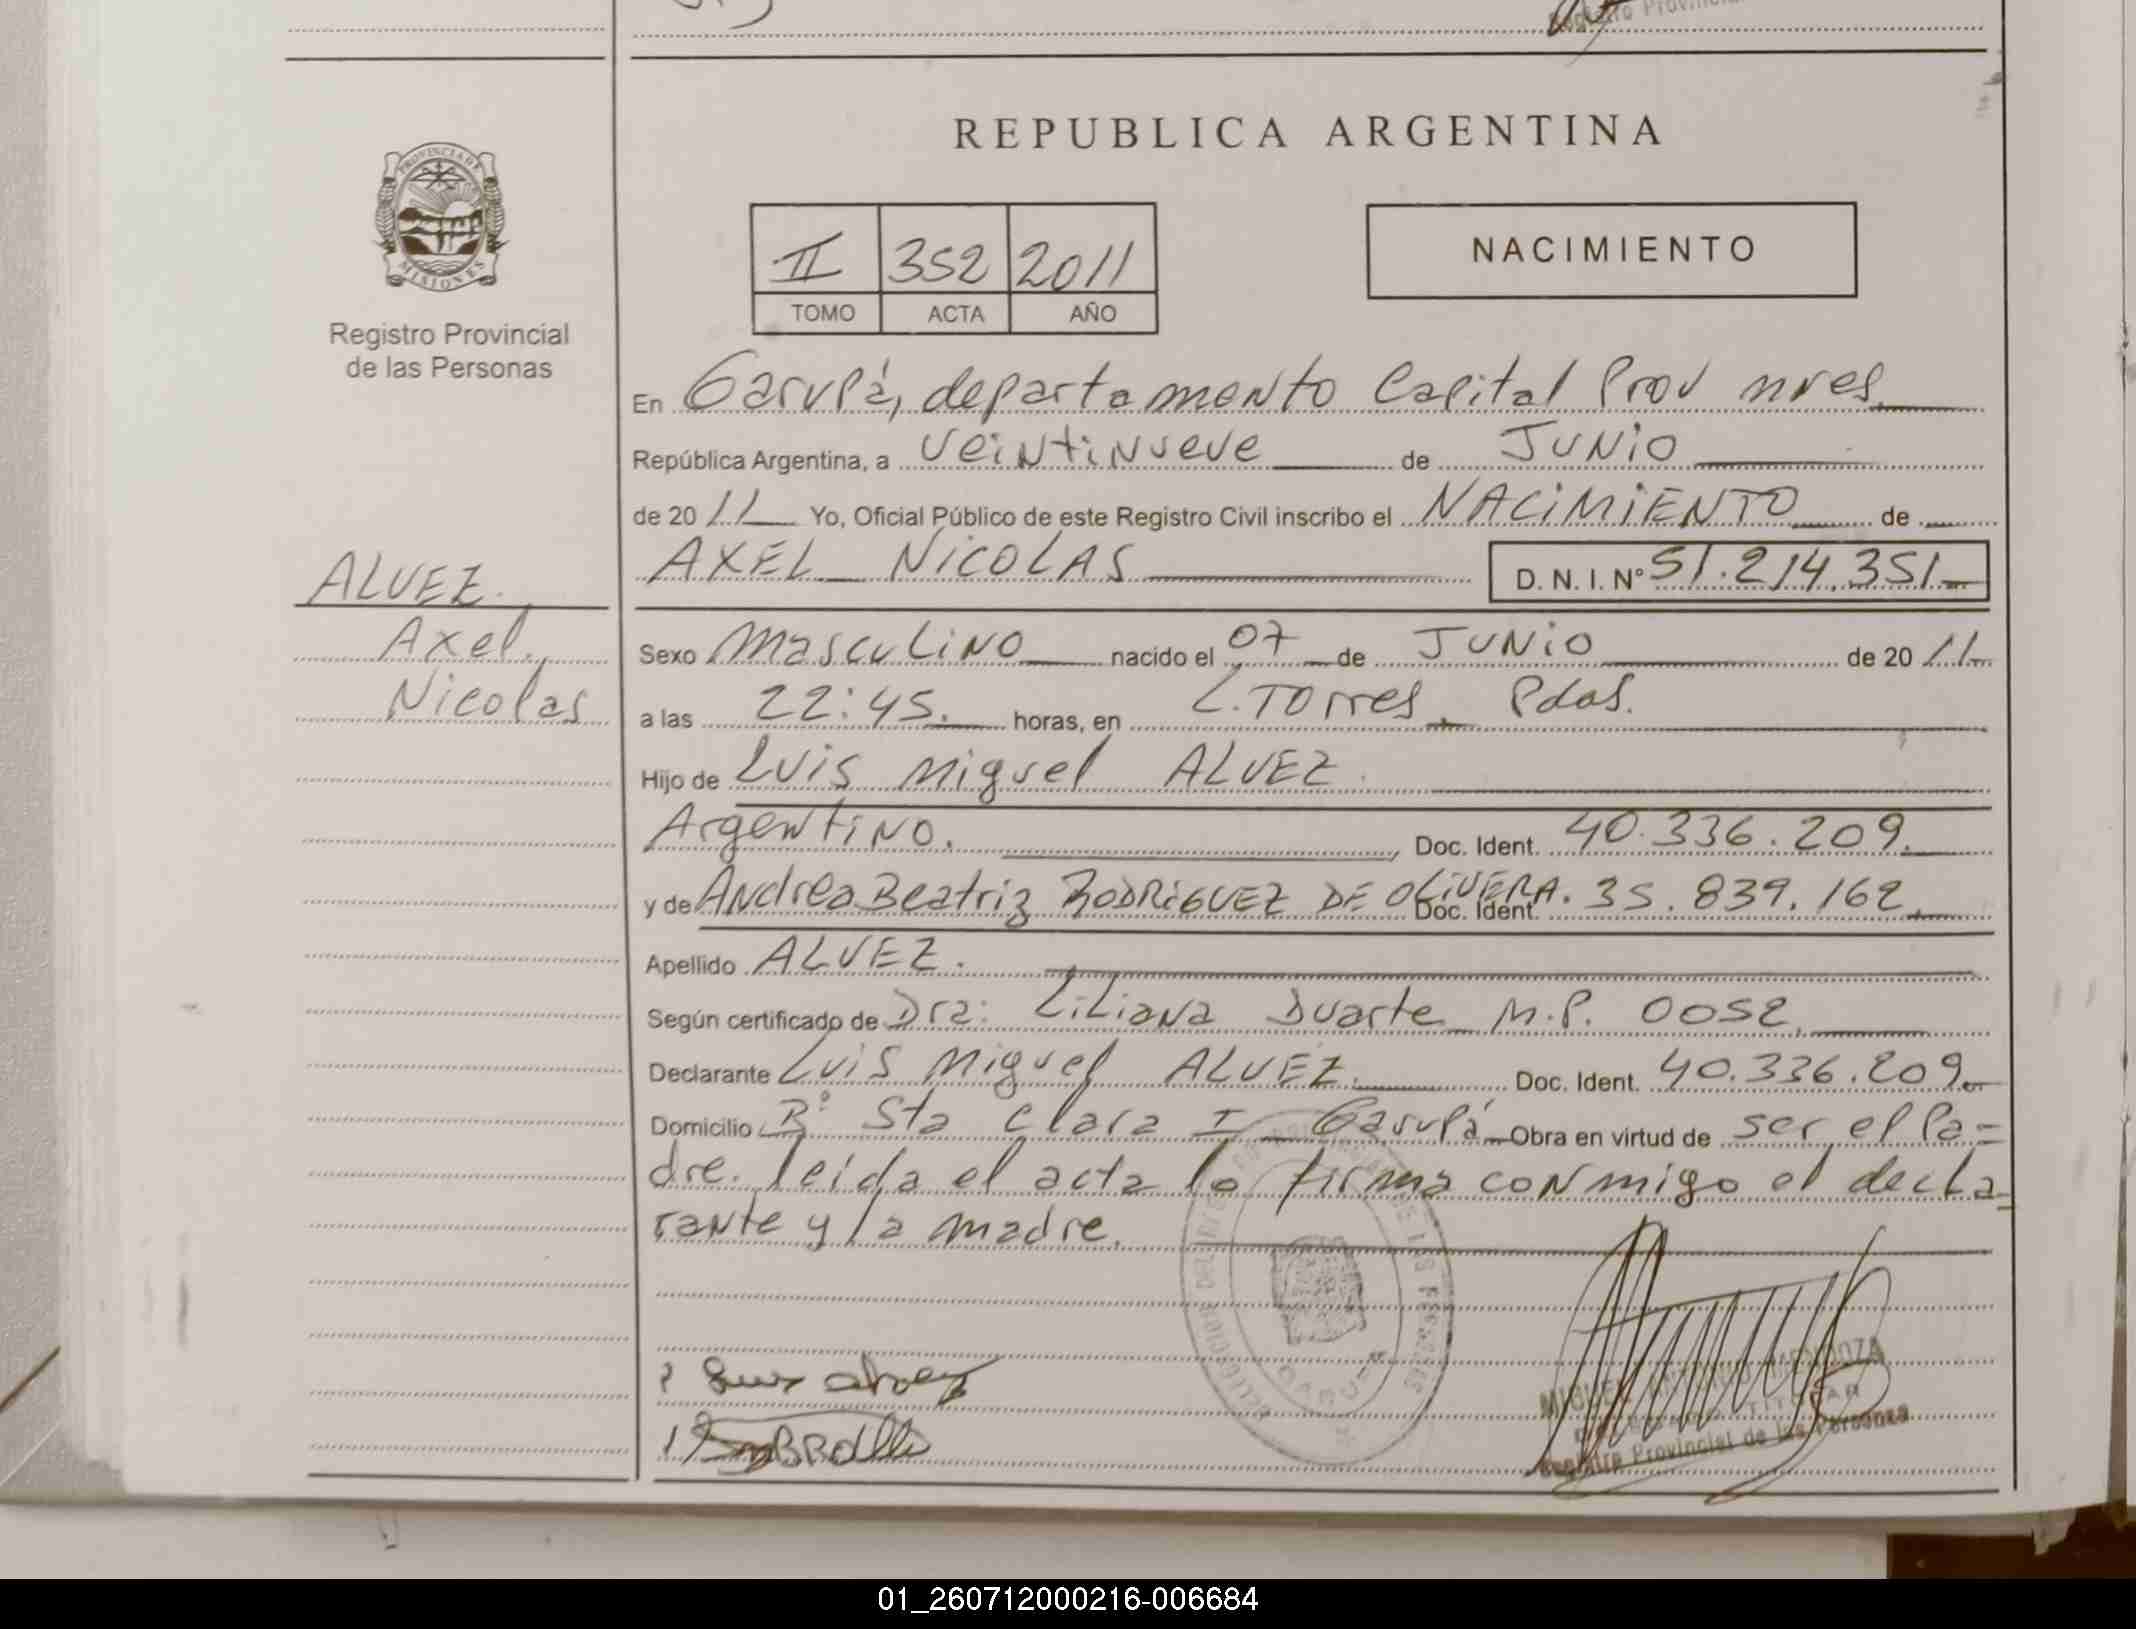 REPUBLICA ARGENTINA
PROVINCIA DE
MISIONES
Registro Provincial
de las Personas
II 352 2011
TOMO ACTA AÑO
NACIMIENTO
En Garupá, departamento Capital Prov mnes.
República Argentina, a veintinueve de JUNIO
de 2011 Yo, Oficial Público de este Registro Civil inscribo el NACIMIENTO de
AXEL NICOLAS D. N. I. Nº 51.214.351
ALVEZ.
Axel.
Nicolas
Sexo Masculino nacido el 07 de JUNIO de 2011
a las 22:45. horas, en L. Torres Pdas.
Hijo de Luis Miguel ALVEZ.
Argentino. Doc. Ident. 40.336.209.
y de Andrea Beatriz RODRIGUEZ DE OLIVERA. Doc. Ident. 35.839.162
Apellido ALVEZ.
Según certificado de Dra: Liliana Duarte M.P. 0052
Declarante Luis Miguel ALVEZ. Doc. Ident. 40.336.209
Domicilio Bº Sta Clara I Garupá Obra en virtud de ser el Pa=
dre. leida el acta lo firma conmigo el decla-
rante y la madre.
MIGUEL ANTONIO MENDOZA
TITULAR
Registro Provincial de las Personas
01_260712000216-006684